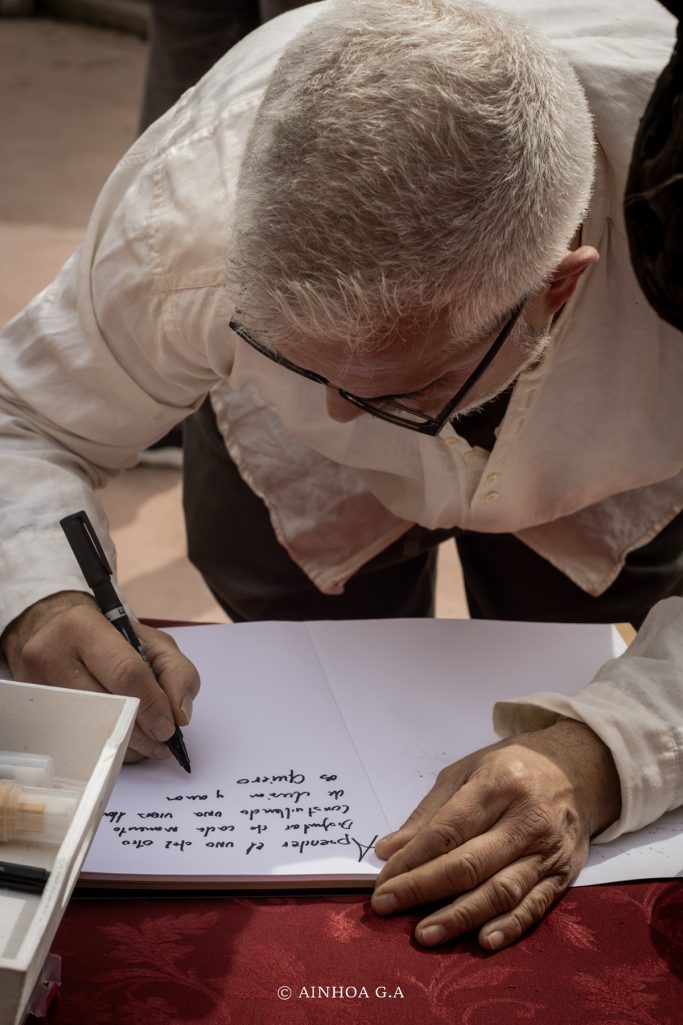 Aprender el uno del otro
Disfrutar de cada momento
construllendo una vida
de ilusion y amor
os Quiero
© AINHOA G.A